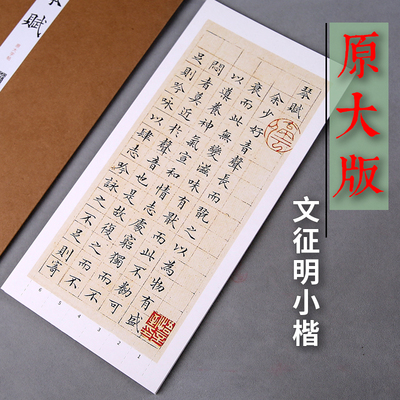 原大版
文征明小楷
琴賦
余少好音聲長而翫之以為物有盛
衰而此無變滋味有猒而此不勌可
以導養神氣宣和情志處窮獨而不
悶者莫近於音聲也是故復之而不
足則吟詠以肆志吟詠之不足則寄
賦
6 5 4 3 2 1